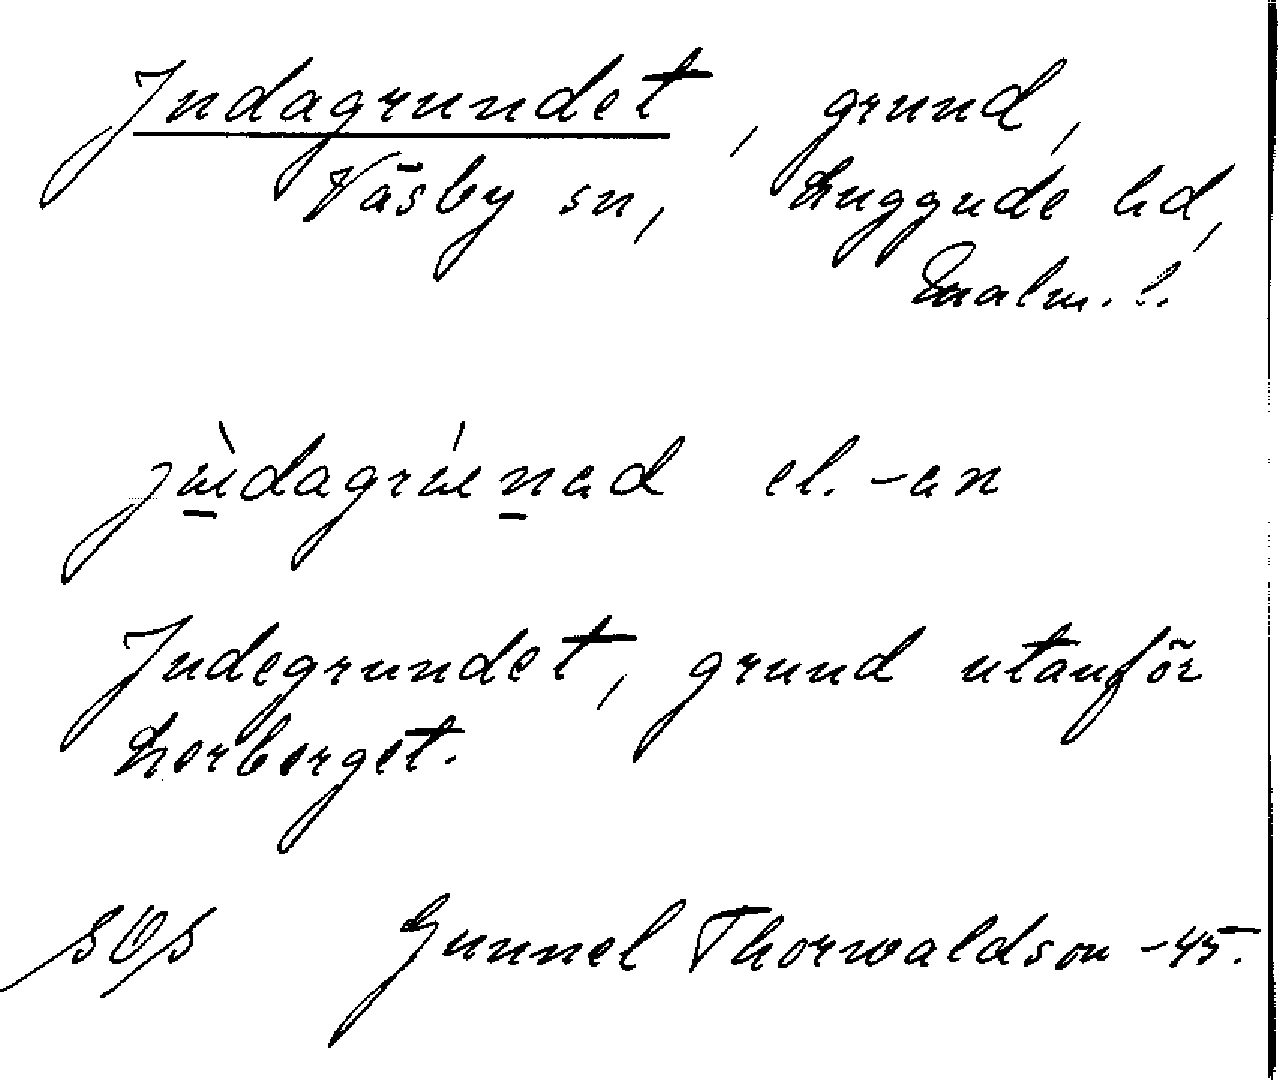 Judagrundet, grund,
Väsby sn, Luggude hd,
Malm. l.
jùdagrúnad el. -an
Judegrundet, grund utanför
Lerberget.
Gunnel Thorwaldson -45.